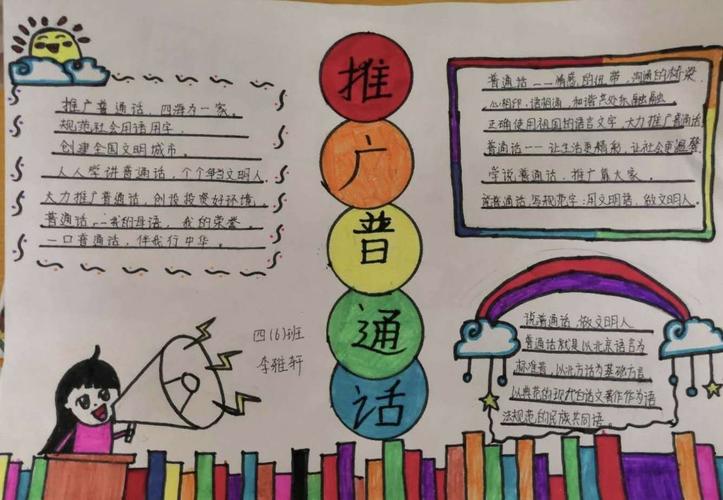 推广普通话
推广普通话，四海为一家。
规范社会用语用字，
创建全国文明城市。
人人学讲普通话，个个争当文明人
大力推广普通话，创设投资好环境。
普通话——我的母语，我的荣誉。
一口普通话，伴我行中华。
普通话——情感的纽带，沟通的桥梁
心相印，语相通，和谐共处乐融融
正确使用祖国的语言文字，大力推广普通话
普通话——让生活更精彩，让社会更温馨
学说普通话，推广靠大家。
普通话，写规范字：用文明语，做文明人。
四(6)班
李雅轩
说普通话，做文明人
普通话就是以北京语言为
标准音，以北方话为基础方言
以典范的现代白话文著作作为语
法规范的民族共同语。